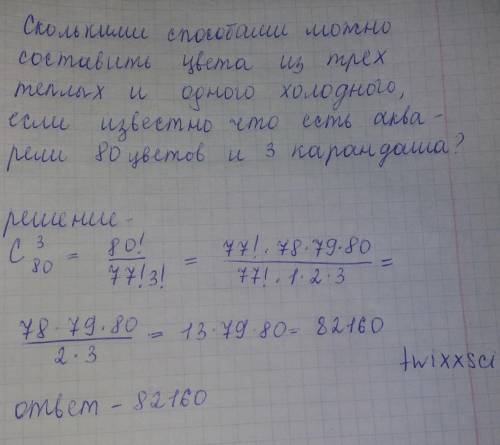 Сколькими способами можно
составить цвета из трёх
теплых и одного холодного,
если известно что есть аква-
рели 80 цветов и 3 карандаша?
решение -
C³₈₀ = 80! / 77!3! = 77! · 78 · 79 · 80 / 77! · 1 · 2 · 3 =
78 · 79 · 80 / 2 · 3 = 13 · 79 · 80 = 82160
twixxsci
ответ - 82160